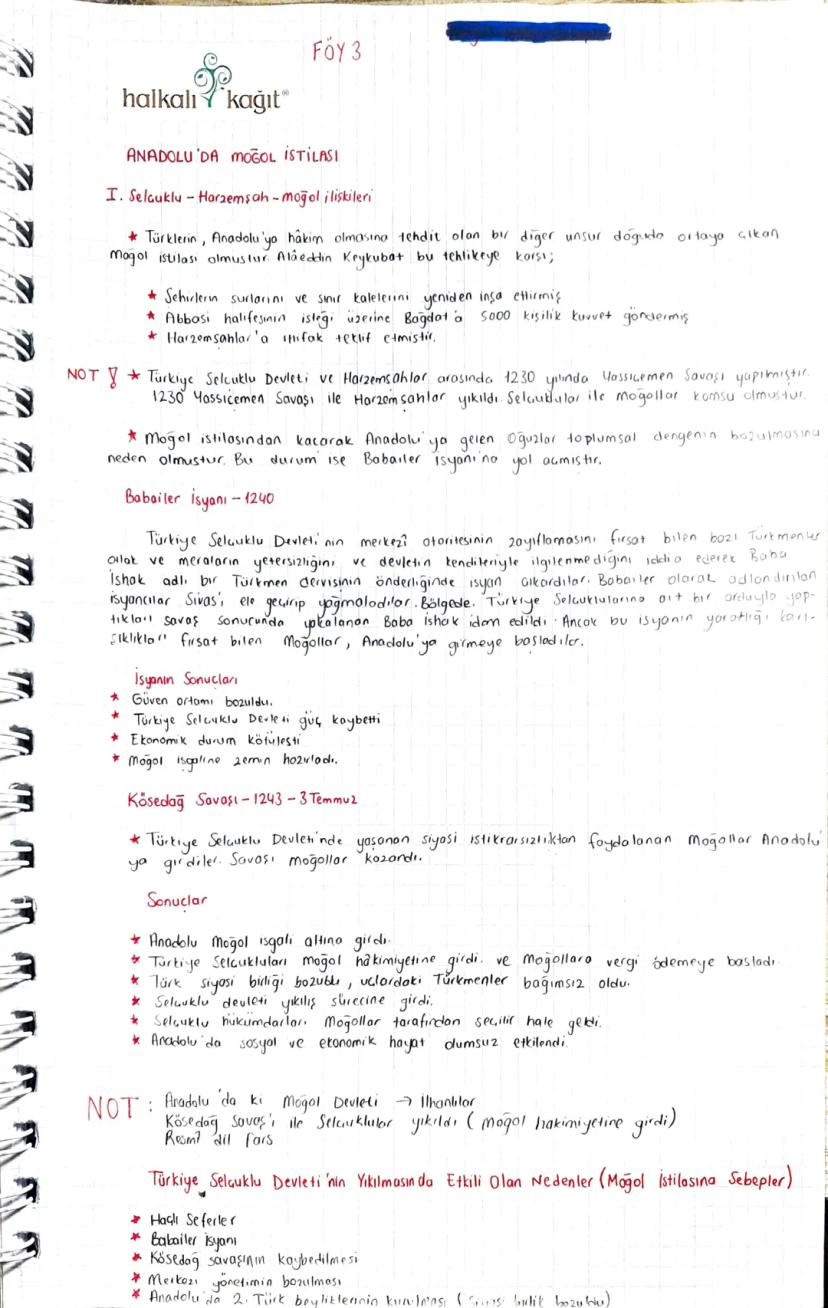 FÖY 3
halkalı kağıt®
ANADOLU'DA MOĞOL İSTİLASI
I. Selçuklu - Harzemşah - moğol ilişkileri
★ Türklerin, Anadolu'ya hâkim olmasına tehdit olan bir diğer unsur doğuda ortaya çıkan
Moğol istilası olmuştur. Alâeddin Keykubat bu tehlikeye karşı;
★ Şehirlerin surlarını ve sınır kalelerini yeniden inşa ettirmiş
★ Abbasi halifesinin isteği üzerine Bağdat'a 5000 kişilik kuvvet göndermiş
★ Harzemşahlar'a ittifak teklif etmiştir.
NOT ! ★ Türkiye Selçuklu Devleti ve Harzemşahlar arasında 1230 yılında Yassıçemen Savaşı yapılmıştır.
1230 Yassıçemen Savaşı ile Harzemşahlar yıkıldı. Selçuklular ile Moğollar komşu olmuştur.
★ Moğol istilasından kaçarak Anadolu'ya gelen Oğuzlar toplumsal dengenin bozulmasına
neden olmuştur. Bu durum ise Babailer isyanı'na yol açmıştır.
Babailer İsyanı - 1240
Türkiye Selçuklu Devleti'nin merkezî otoritesinin zayıflamasını fırsat bilen bazı Türkmenler
otlak ve meraların yetersizliğini ve devletin kendileriyle ilgilenmediğini iddia ederek Baba
İshak adlı bir Türkmen dervişinin önderliğinde isyan çıkardılar. Babailer olarak adlandırılan
isyancılar Sivas'ı ele geçirip yağmaladılar. Bölgede, Türkiye Selçuklularına ait bir orduyla yap-
tıkları savaş sonucunda yakalanan Baba İshak idam edildi. Ancak bu isyanın yarattığı karı-
şıklıkları fırsat bilen Moğollar, Anadolu'ya girmeye başladılar.
İsyanın Sonuçları
★ Güven ortamı bozuldu.
★ Türkiye Selçuklu Devleti güç kaybetti
★ Ekonomik durum kötüleşti
★ Moğol işgaline zemin hazırladı.
Kösedağ Savaşı - 1243 - 3 Temmuz
★ Türkiye Selçuklu Devleti'nde yaşanan siyasi istikrarsızlıktan faydalanan Moğollar Anadolu'
ya girdiler. Savaşı moğollar kazandı.
Sonuçlar
★ Anadolu Moğol işgali altına girdi.
★ Türkiye Selçukluları moğol hâkimiyetine girdi. ve Moğollara vergi ödemeye başladı.
★ Türk siyasi birliği bozuldu, uçlardaki Türkmenler bağımsız oldu.
★ Selçuklu devleti yıkılış sürecine girdi.
★ Selçuklu hükümdarları Moğollar tarafından seçilir hale geldi.
★ Anadolu'da sosyal ve ekonomik hayat olumsuz etkilendi.
NOT : Anadolu'da ki Moğol Devleti → İlhanlılar
Kösedağ Savaş'ı ile Selçuklular yıkıldı (moğol hakimiyetine girdi)
Resmî dil fars
Türkiye Selçuklu Devleti'nin Yıkılmasında Etkili Olan Nedenler (Moğol İstilasına Sebepler)
★ Haçlı Seferler
★ Babailer İsyanı
★ Kösedağ savaşının kaybedilmesi
★ Merkezi yönetimin bozulması
★ Anadolu'da 2. Türk beyliklerinin kurulması (Siyasi birlik bozuldu)